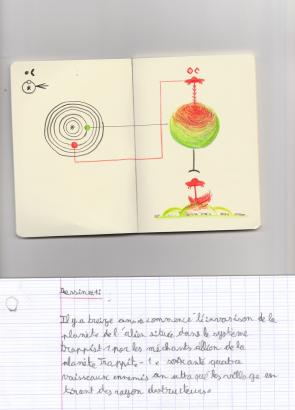 Dessin n°1:
Il y a treize anns commencé l'invasion de la
planète de l'alien située dans le système
trappist-1 por les méchants albien de la
planète Trappist-1 e soixante quatre
vaisseaux ennemis on attaqué les village en
tirant des rayon destructeurs